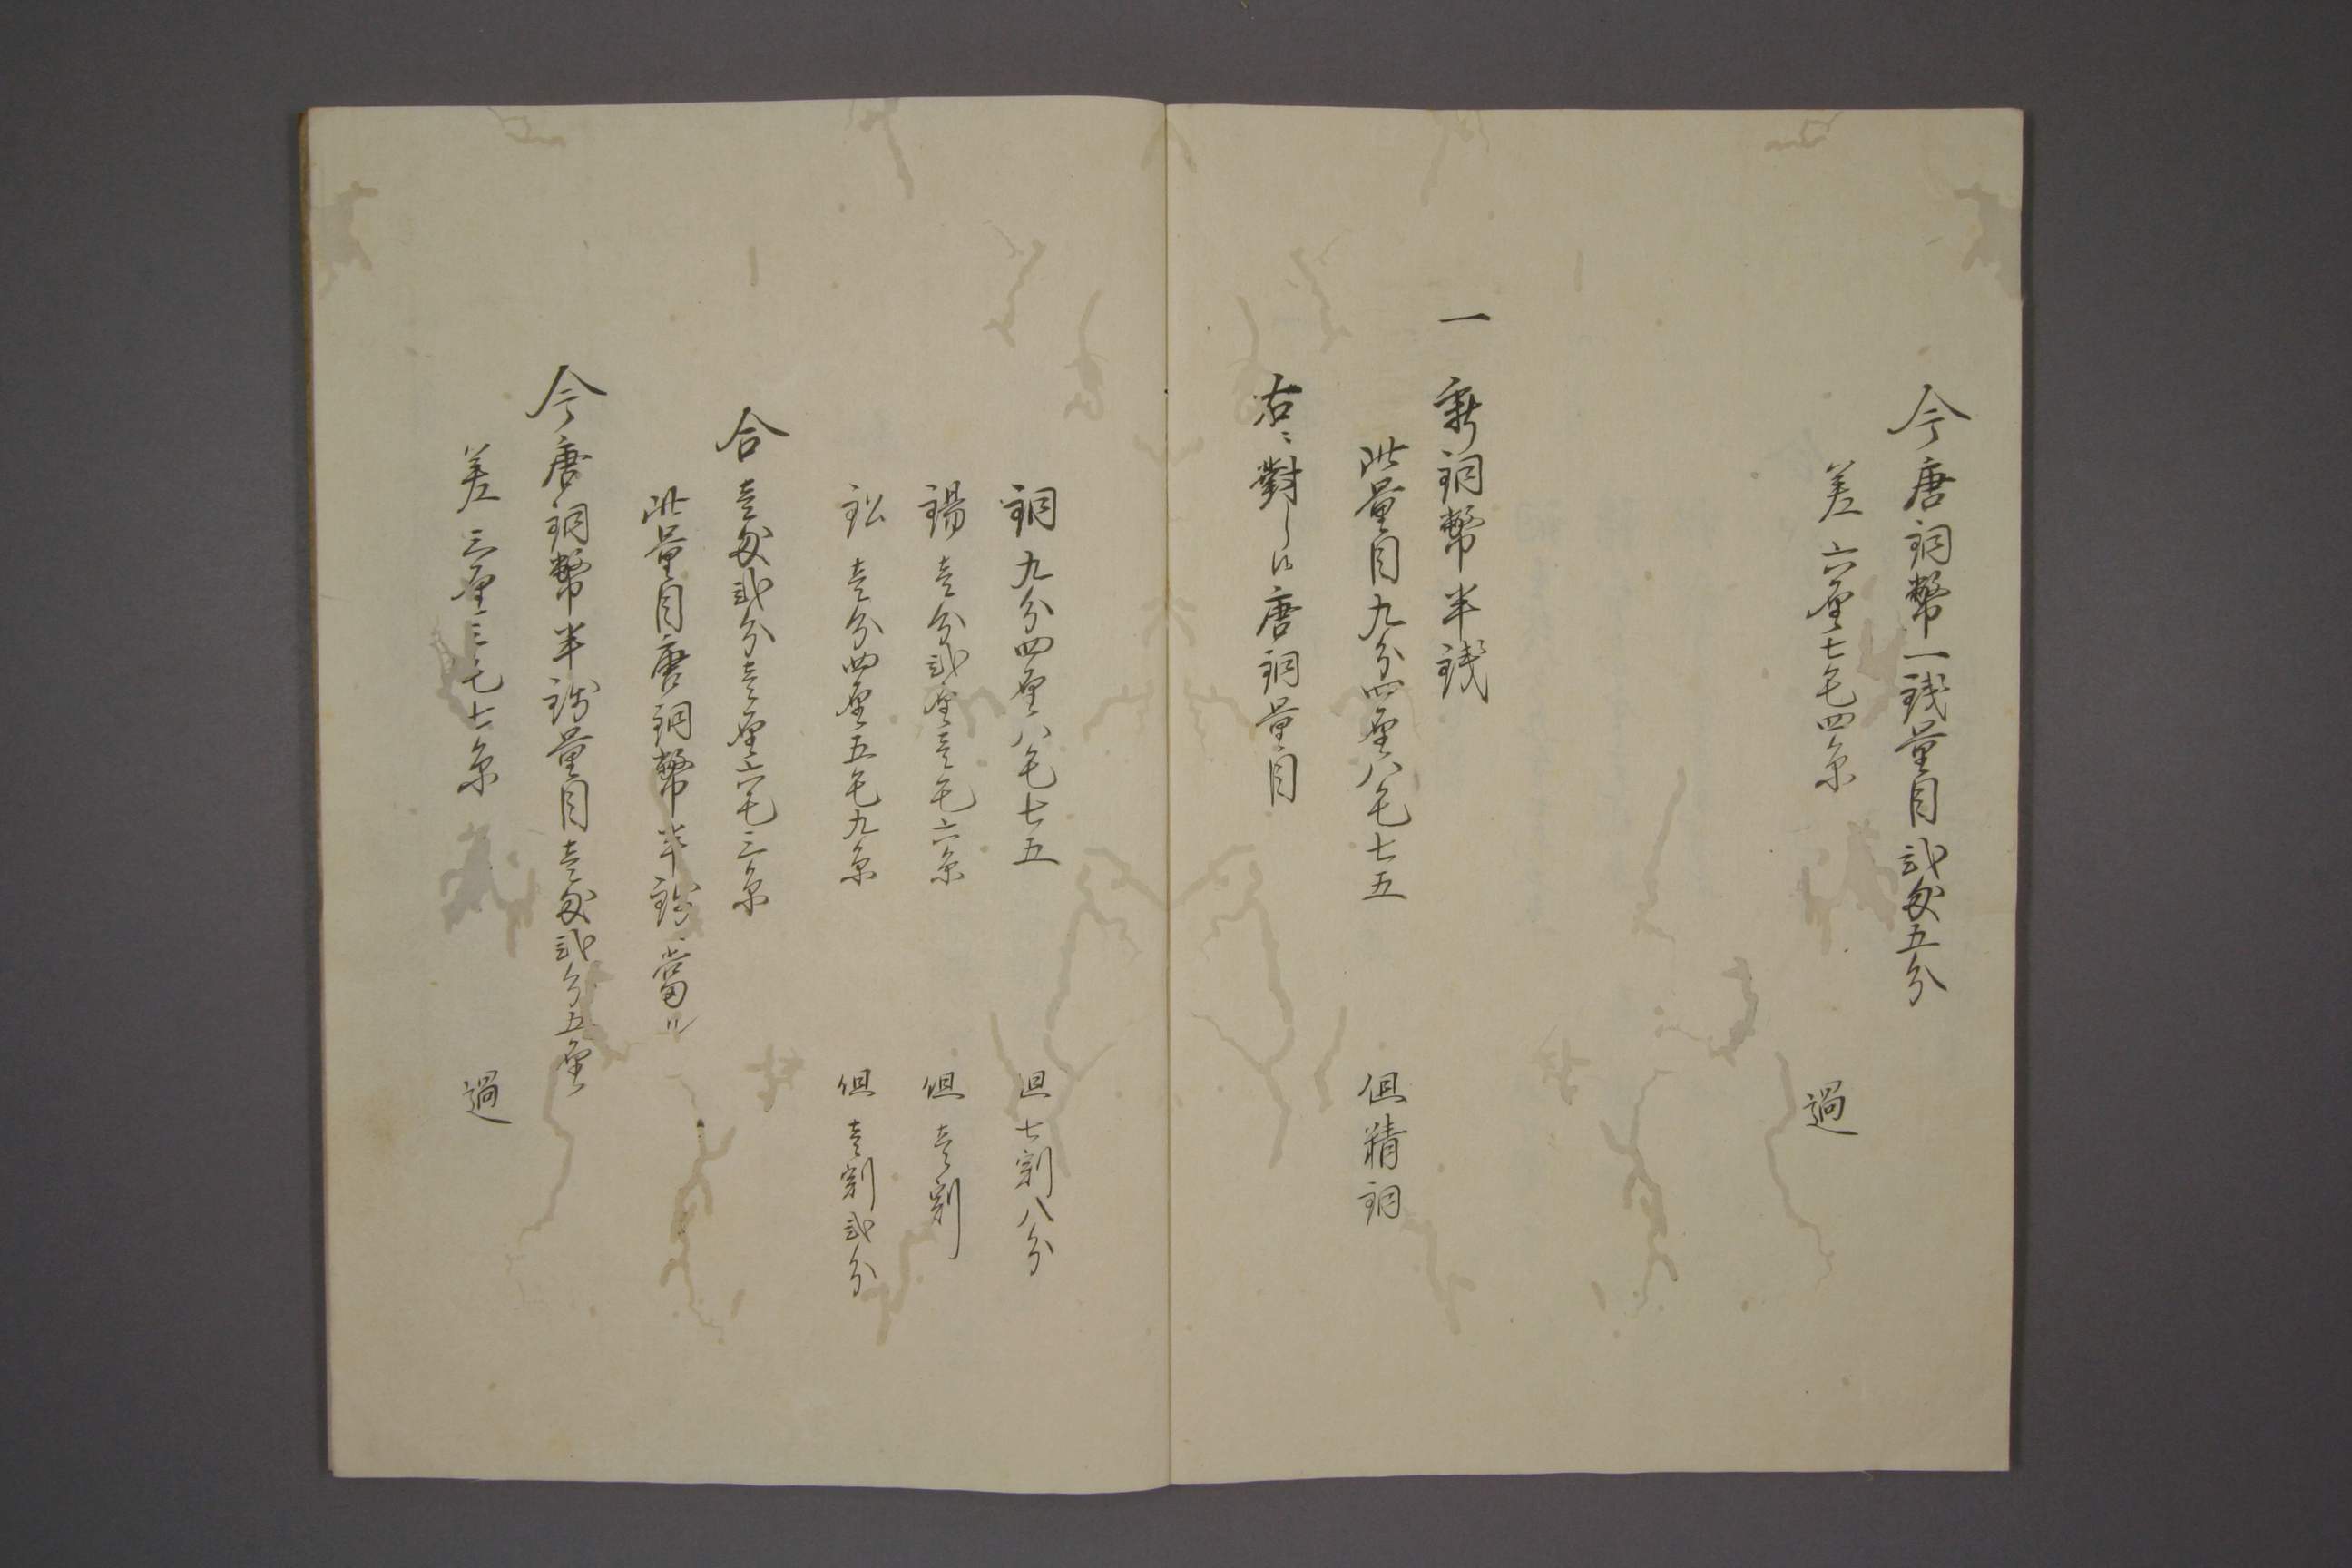 今唐銅幣一銭量目弐匁五分
差 六厘七毛四糸 過
一 新銅幣半銭
此量目九分四厘八毛七五 但精銅
右ニ對シ候唐銅量目
銅 九分四厘八毛七五 但七割八分
錫 壱分弐厘壱毛六糸 但壱割
鉛 壱分四厘五毛九糸 但壱割弐分
合 壱匁弐分壱厘六毛三糸
此量目唐銅幣半銭ニ當ル
今唐銅幣半銭量目壱匁弐分五厘
差 三厘三毛七糸 過